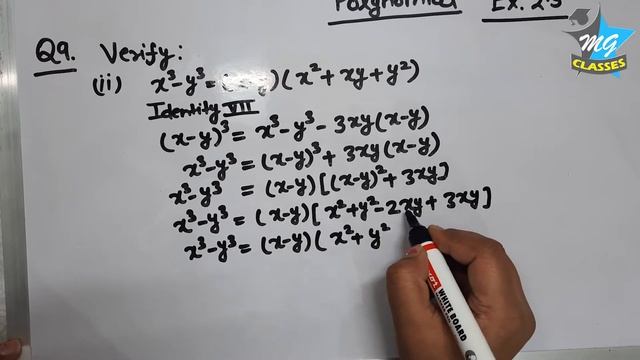 Polynomial Ex. 2.5
MG CLASSES
Q9. Verify:
(ii) x³-y³ = (x-y)(x²+xy+y²)
Identity VII
(x-y)³ = x³-y³-3xy(x-y)
x³-y³ = (x-y)³ + 3xy(x-y)
x³-y³ = (x-y)[(x-y)²+3xy]
x³-y³ = (x-y)[x²+y²-2xy+3xy]
x³-y³ = (x-y)(x²+y²
WHITE BOARD